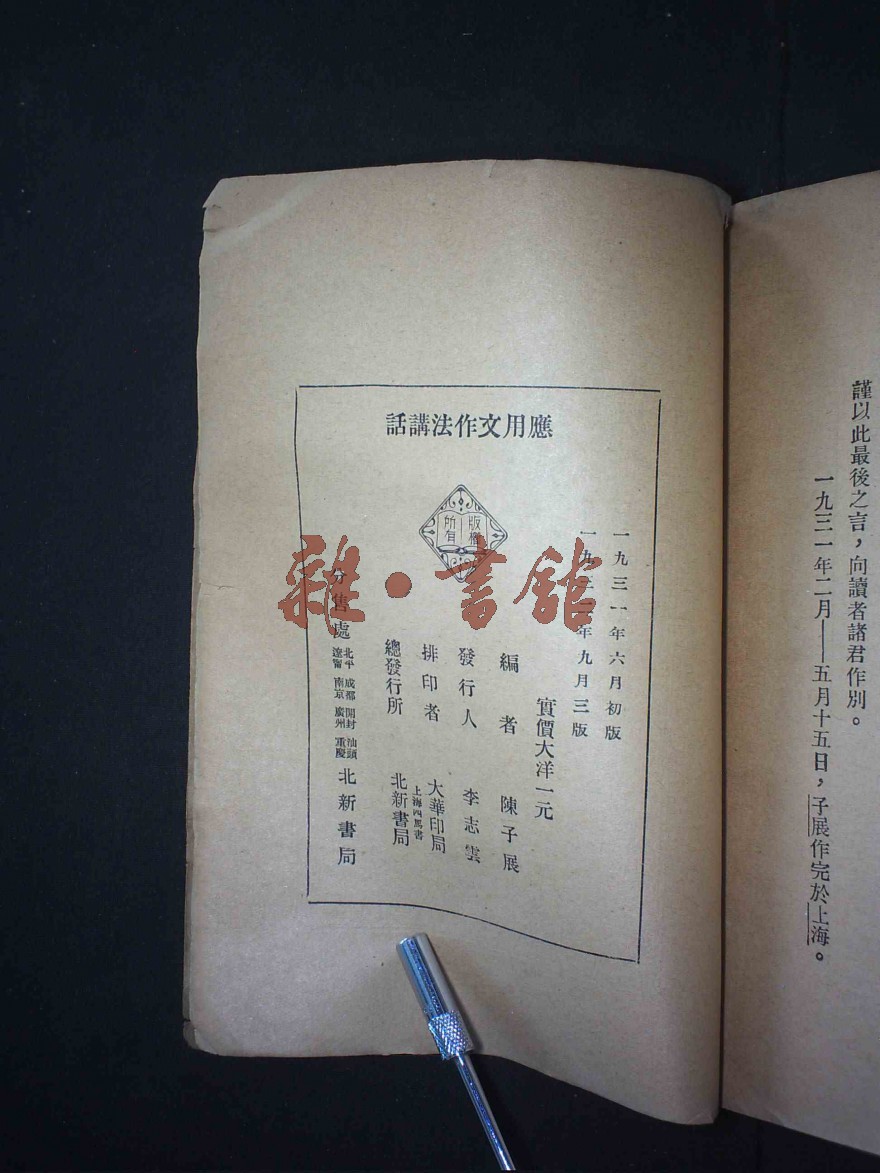 謹以此最後之言，向讀者諸君作別。
一九三一年二月——五月十五日，子展作完於上海。
應用文作法講話
版權
所有
一九三一年六月初版
年九月三版
實價大洋一元
編者 陳子展
發行人 李志雲
排印者 大華印局
上海四馬書
總發行所 北新書局
分售處 北平 成都 開封 汕頭
遼甯 南京 廣州 重慶
北新書局
雜·書館